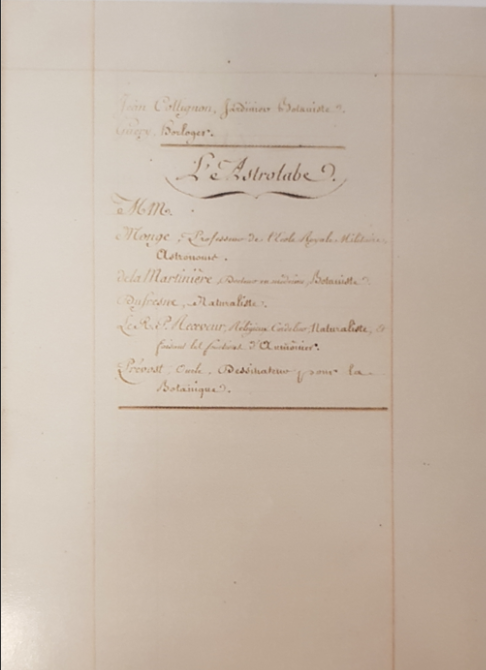 Jean Collignon, Jardinier Botaniste.
Guery, Horloger.
L'Astrolabe.
MM.
Monge, Professeur de l'Ecole Royale Militaire
Astronome.
de la Martinière, Docteur en médecine, Botaniste.
Dufresne, Naturaliste.
Le R. P. Receveur, Religieux Cordelier, Naturaliste, et
faisant les fonctions d'Aumônier.
Prévost, Oncle, Dessinateur pour la
Botanique.